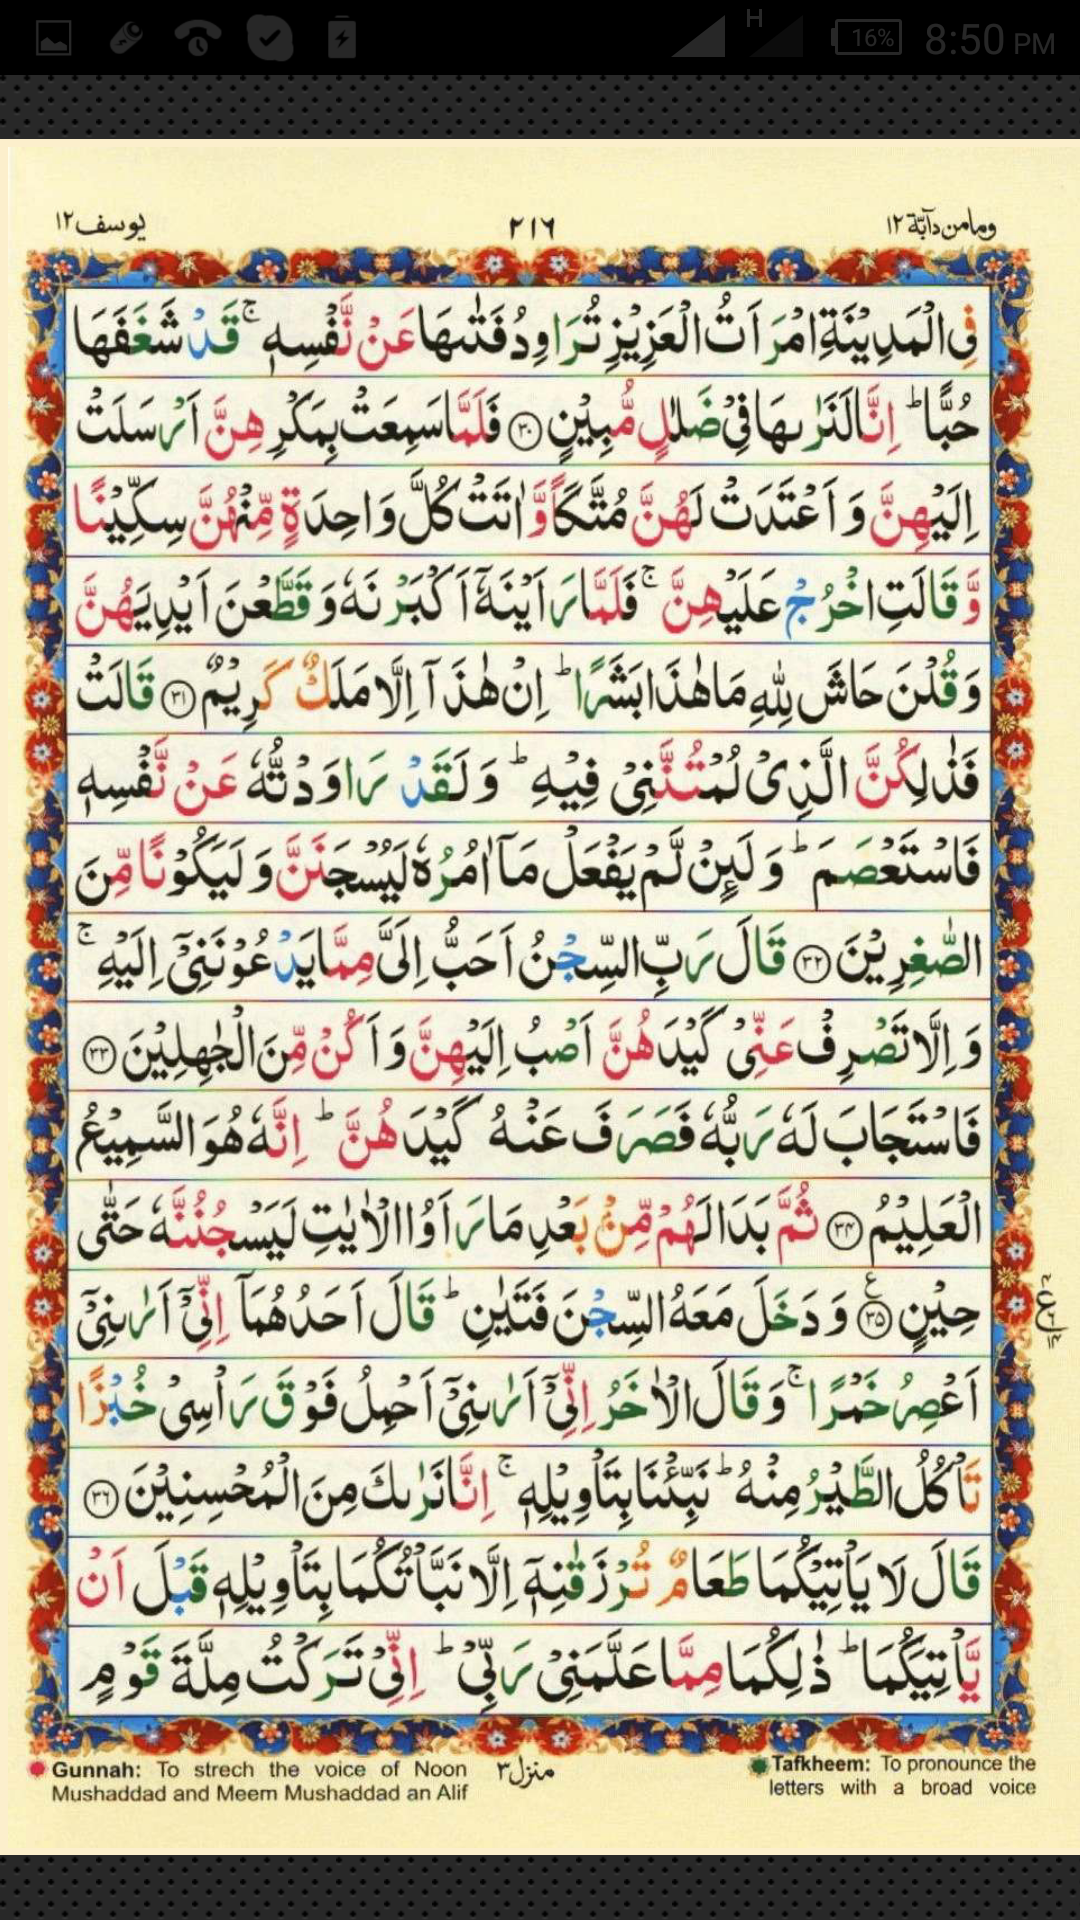 H 16% 8:50 PM
ومامن دآبّة ١٢
٢١٦
يوسف ١٢
فِى الْمَدِيْنَةِ امْرَاَتُ الْعَزِيْزِ تُرَاوِدُ فَتٰىهَا عَنْ نَّفْسِهٖ ۚ قَدْ شَغَفَهَا
حُبًّا ؕ اِنَّا لَنَرٰىهَا فِىْ ضَلٰلٍ مُّبِيْنٍ ﴿۳۰﴾ فَلَمَّا سَمِعَتْ بِمَكْرِهِنَّ اَرْسَلَتْ
اِلَيْهِنَّ وَاَعْتَدَتْ لَهُنَّ مُتَّكَاً وَّاٰتَتْ كُلَّ وَاحِدَةٍ مِّنْهُنَّ سِكِّيْنًا
وَّقَالَتِ اخْرُجْ عَلَيْهِنَّ ۚ فَلَمَّا رَاَيْنَهٗۤ اَكْبَرْنَهٗ وَقَطَّعْنَ اَيْدِيَهُنَّ
وَقُلْنَ حَاشَ لِلّٰهِ مَا هٰذَا بَشَرًا ؕ اِنْ هٰذَاۤ اِلَّا مَلَكٌ كَرِيْمٌ ﴿۳۱﴾ قَالَتْ
فَذٰلِكُنَّ الَّذِىْ لُمْتُنَّنِىْ فِيْهِ ؕ وَلَقَدْ رَاوَدْتُّهٗ عَنْ نَّفْسِهٖ
فَاسْتَعْصَمَ ؕ وَلَئِنْ لَّمْ يَفْعَلْ مَاۤ اٰمُرُهٗ لَيُسْجَنَنَّ وَلَيَكُوْنًا مِّنَ
الصّٰغِرِيْنَ ﴿۳۲﴾ قَالَ رَبِّ السِّجْنُ اَحَبُّ اِلَىَّ مِمَّا يَدْعُوْنَنِىْۤ اِلَيْهِ ۚ
وَاِلَّا تَصْرِفْ عَنِّىْ كَيْدَهُنَّ اَصْبُ اِلَيْهِنَّ وَاَكُنْ مِّنَ الْجٰهِلِيْنَ ﴿۳۳﴾
فَاسْتَجَابَ لَهٗ رَبُّهٗ فَصَرَفَ عَنْهُ كَيْدَهُنَّ ؕ اِنَّهٗ هُوَ السَّمِيْعُ
الْعَلِيْمُ ﴿۳۴﴾ ثُمَّ بَدَا لَهُمْ مِّنْۢ بَعْدِ مَا رَاَوُا الْاٰيٰتِ لَيَسْجُنُنَّهٗ حَتّٰى
حِيْنٍ ﴿۳۵﴾ وَدَخَلَ مَعَهُ السِّجْنَ فَتَيٰنِ ؕ قَالَ اَحَدُهُمَاۤ اِنِّىْۤ اَرٰىنِىْۤ
اَعْصِرُ خَمْرًا ۚ وَقَالَ الْاٰخَرُ اِنِّىْۤ اَرٰىنِىْۤ اَحْمِلُ فَوْقَ رَاْسِىْ خُبْزًا
تَاْكُلُ الطَّيْرُ مِنْهُ ؕ نَبِّئْنَا بِتَاْوِيْلِهٖ ۚ اِنَّا نَرٰىكَ مِنَ الْمُحْسِنِيْنَ ﴿۳۶﴾
قَالَ لَا يَاْتِيْكُمَا طَعَامٌ تُرْزَقٰنِهٖۤ اِلَّا نَبَّاْتُكُمَا بِتَاْوِيْلِهٖ قَبْلَ اَنْ
يَّاْتِيَكُمَا ؕ ذٰلِكُمَا مِمَّا عَلَّمَنِىْ رَبِّىْ ؕ اِنِّىْ تَرَكْتُ مِلَّةَ قَوْمٍ
منزل ٣
Gunnah: To strech the voice of Noon
Mushaddad and Meem Mushaddad an Alif
Tafkheem: To pronounce the
letters with a broad voice